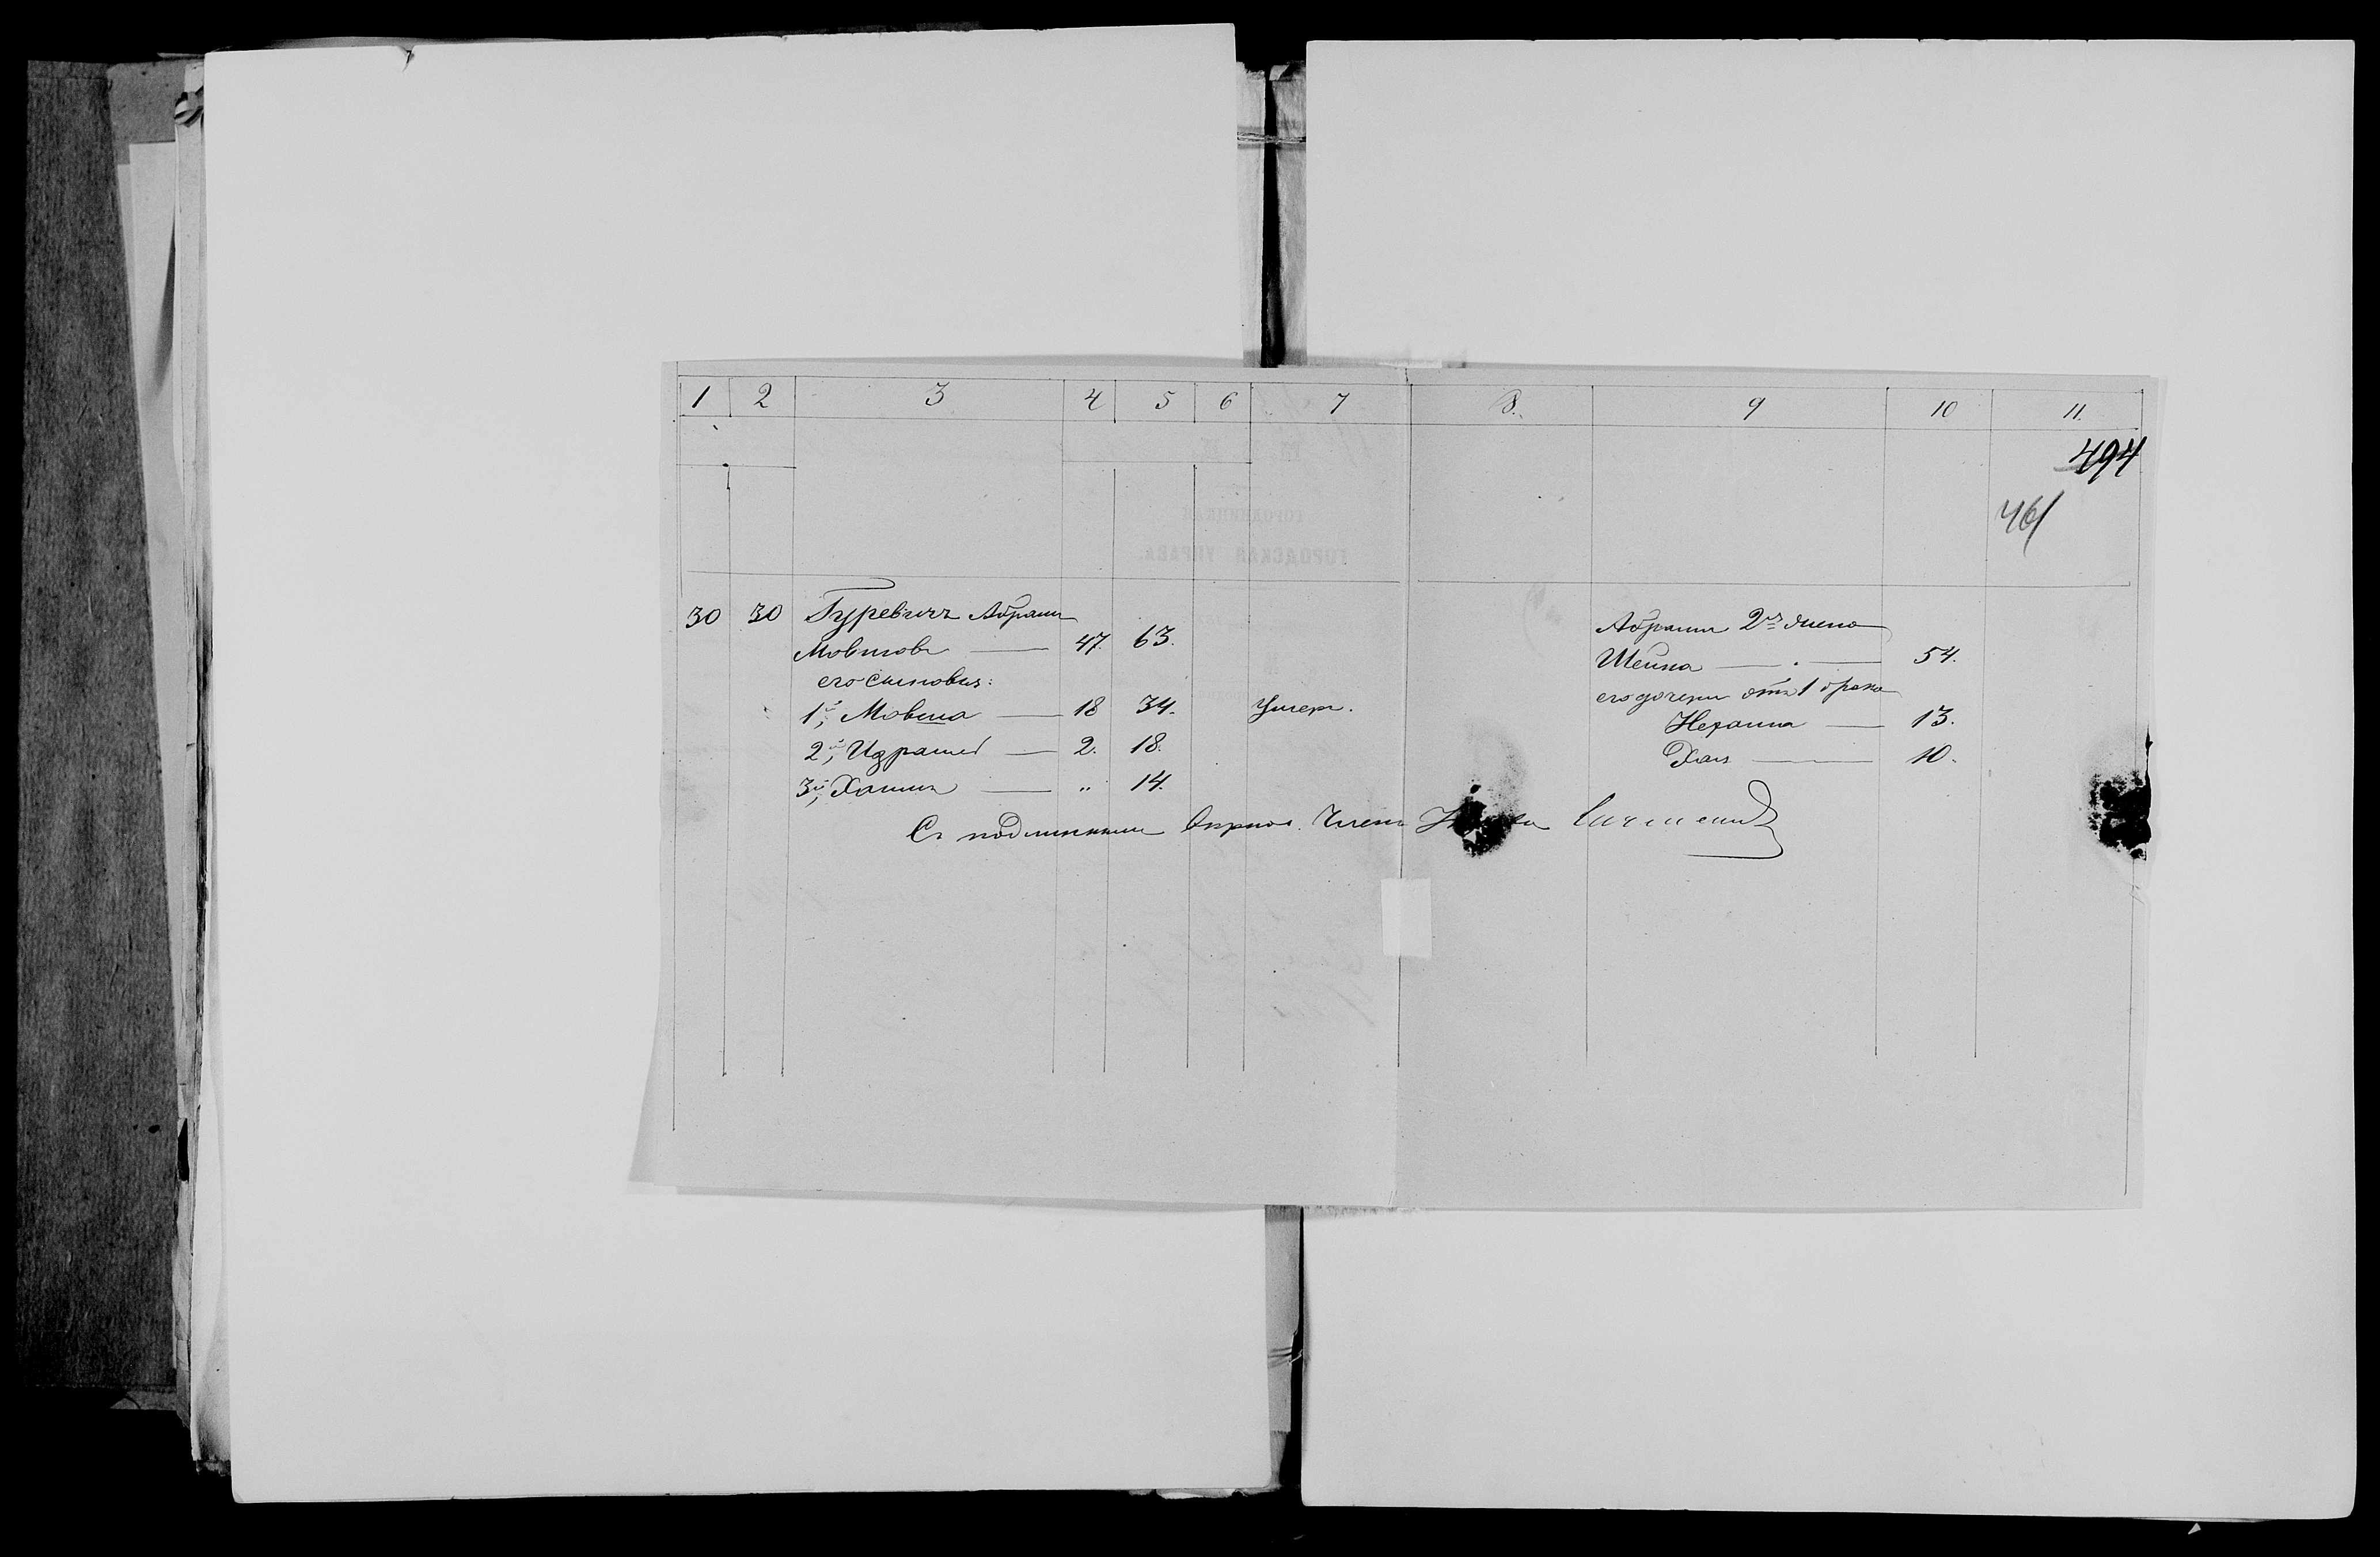 1 2 3 4 5 6 7 8. 9 10 11.
494
461
30 30 Гуревичъ Абрамъ
Мовшовъ — 47. 63.
его сыновья:
1й, Мовша — 18 34. Умеръ.
2й, Израиль — 2. 18.
3й, Хаимъ — " 14.
Абрама 2я жена
Шейна — 54.
его дочери отъ 1 брака
Нехама — 13.
Хая — 10.
Съ подлиннымъ вѣрно. Членъ
ГОРОДСКАЯ УПРАВА.